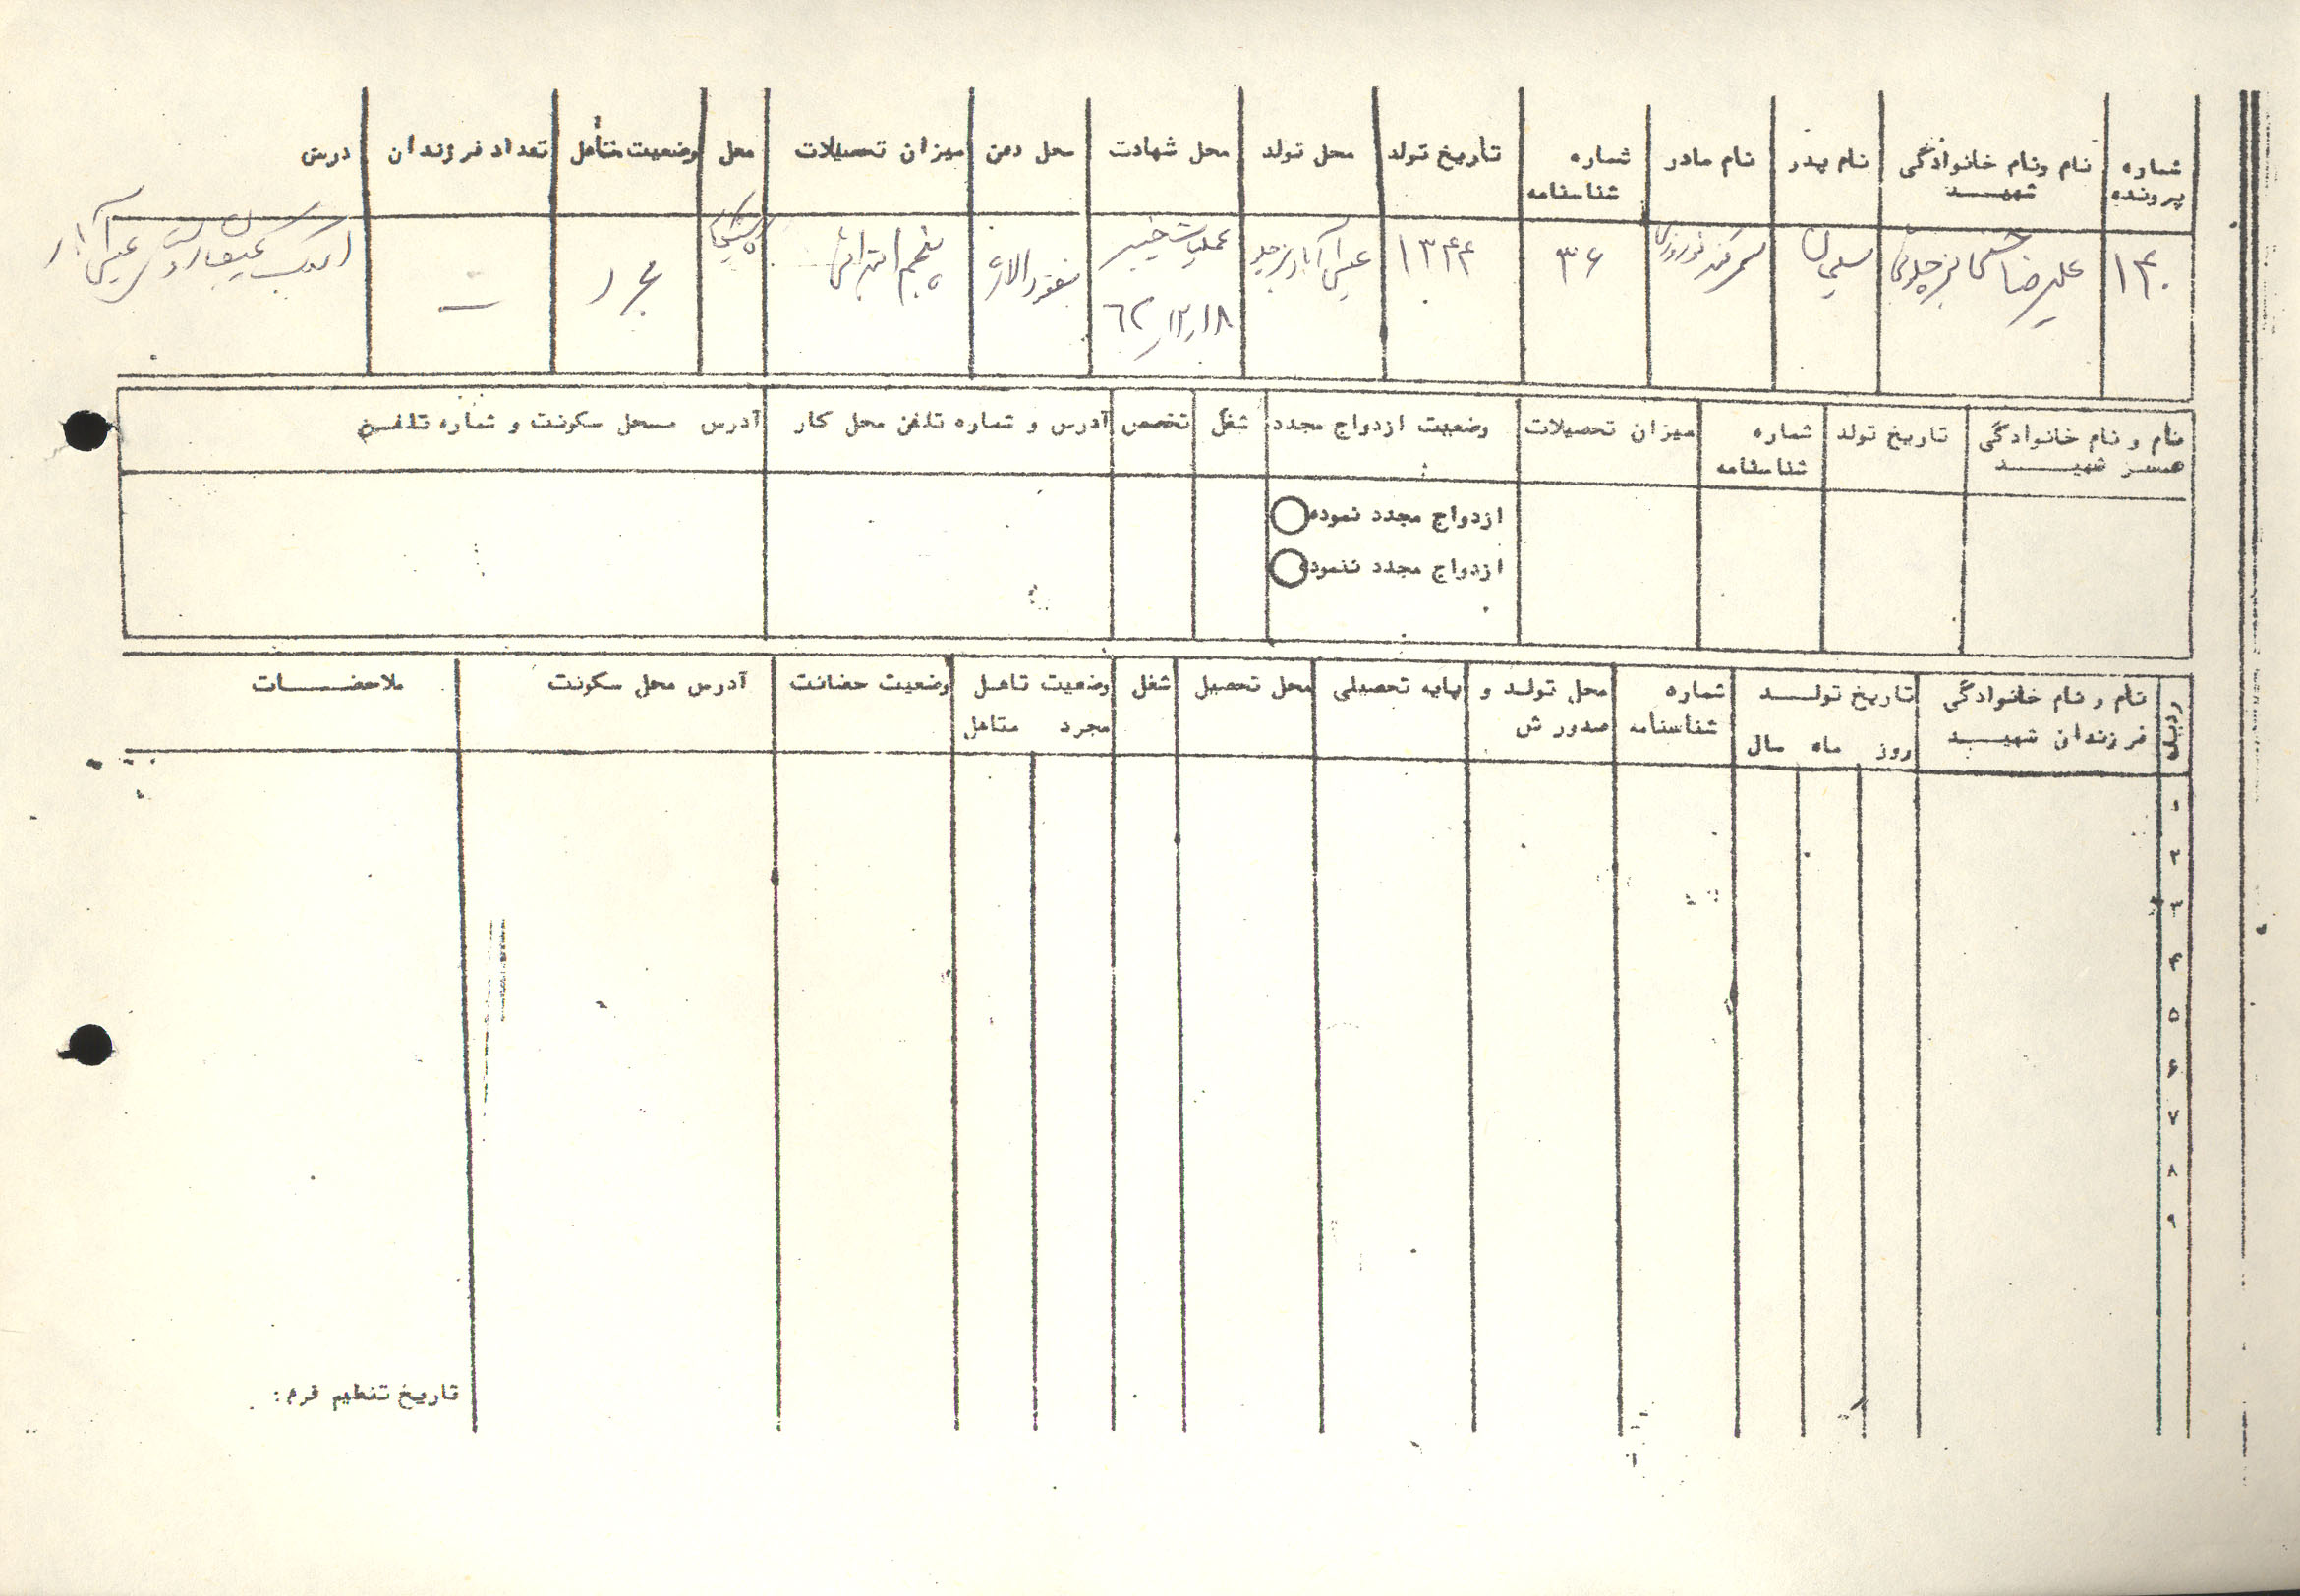 شماره پرونده
نام ونام خانوادگی شهید
نام پدر
نام مادر
شماره شناسنامه
تاریخ تولد
محل تولد
محل شهادت
محل دفن
میزان تحصیلات
محل
وضعیت متأهل
تعداد فرزندان
درس
۱۴۰
علیرضا
۳۶
۱۳۴۴
عملیات خیبر
۶۲/۱۲/۱۸
مفقود الاثر
پنجم ابتدائی
نام و نام خانوادگی همسر شهید
تاریخ تولد
شماره شناسنامه
میزان تحصیلات
وضعیت ازدواج مجدد
شغل
تخصص
آدرس و شماره تلفن محل کار
آدرس محل سکونت و شماره تلفن
ازدواج مجدد نموده
ازدواج مجدد ننموده
ردیف
نام و نام خانوادگی فرزندان شهید
تاریخ تولد
روز ماه سال
شماره شناسنامه
محل تولد و صدور ش
پایه تحصیلی
محل تحصیل
شغل
وضعیت تاهل
مجرد متاهل
وضعیت حضانت
آدرس محل سکونت
ملاحضات
۱
۲
۳
۴
۵
۶
۷
۸
۹
تاریخ تنظیم فرم: